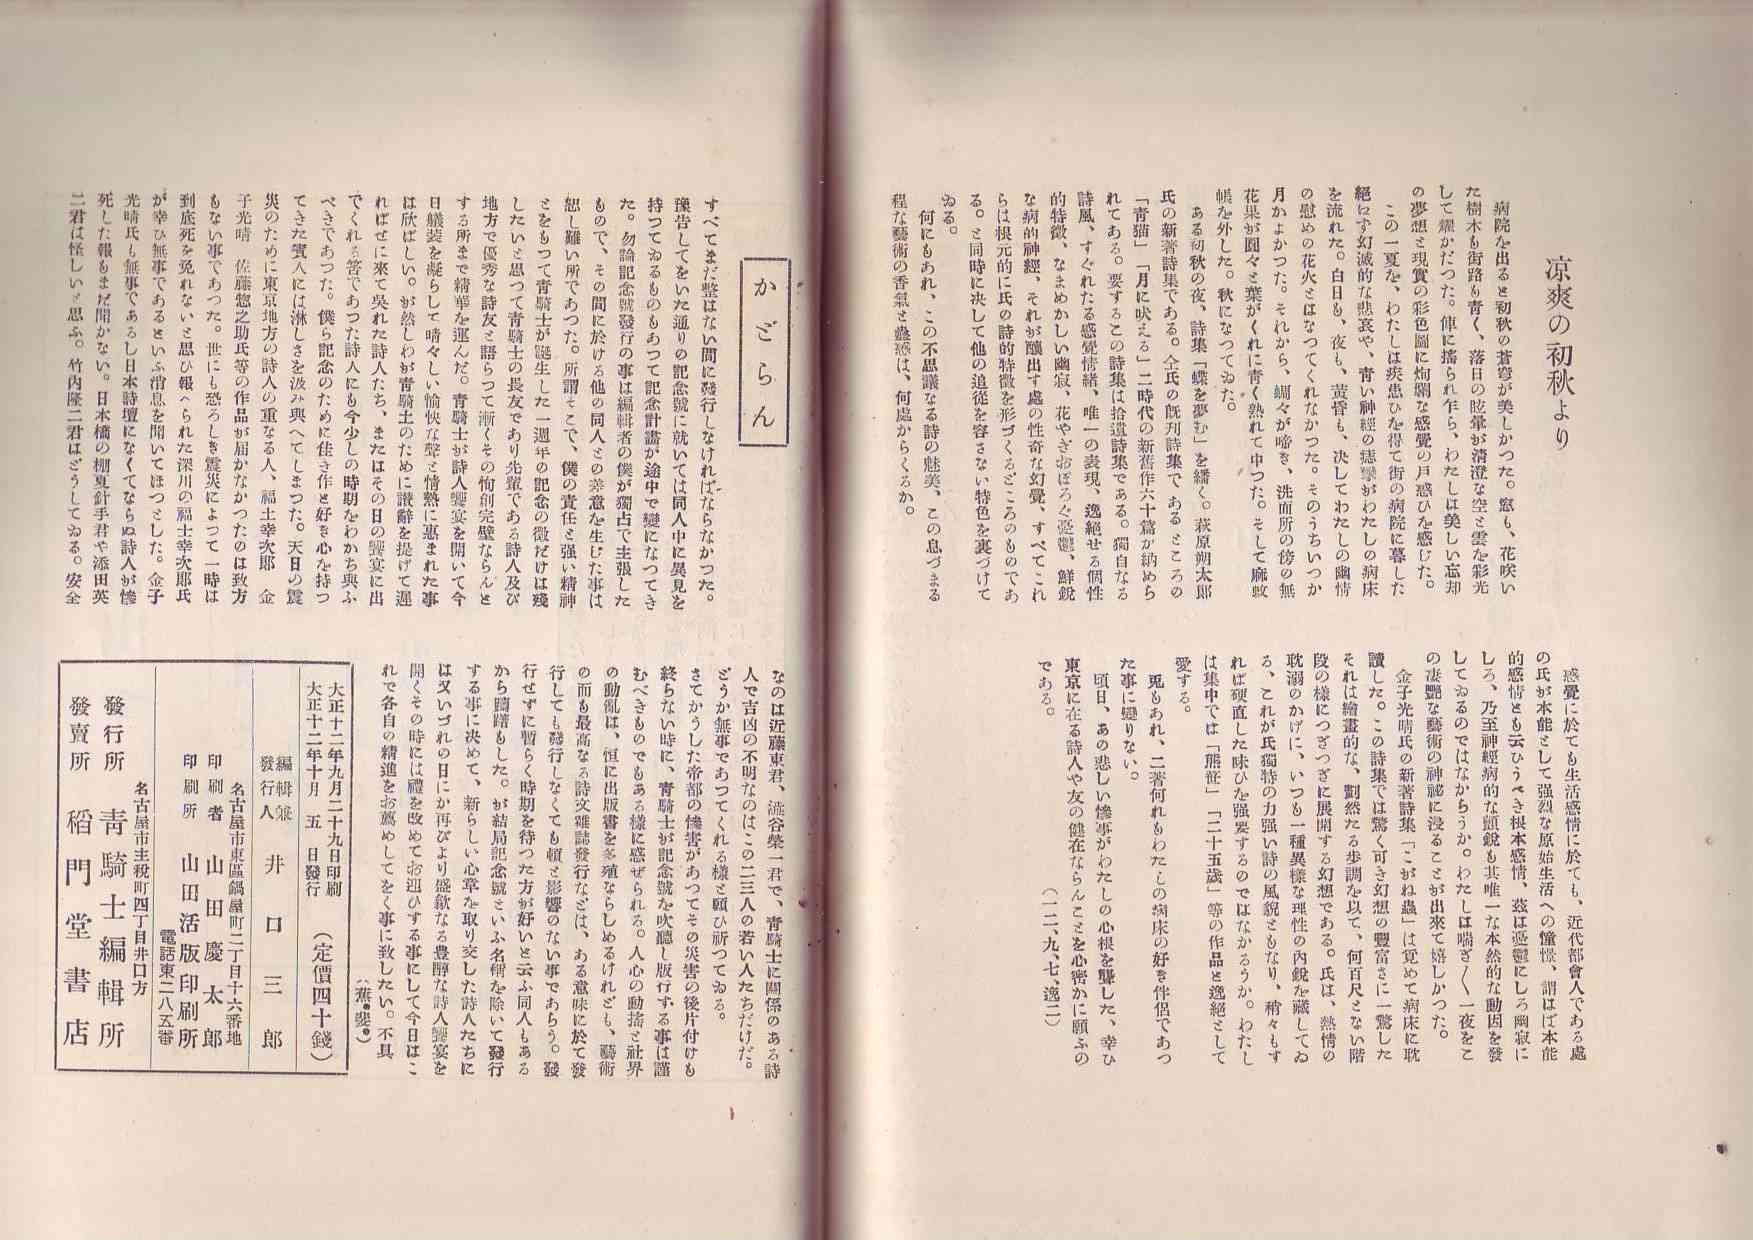 凉爽の初秋より
病院を出ると初秋の蒼穹が美しかつた。窓も、花咲い
た樹木も街路も靑く、落日の眩暈が清澄な空と雲を彩光
して耀かだつた。俥に搖られ乍ら、わたしは美しい忘却
の夢想と現實の彩色圖に絢爛な感覺の戸惑ひを感じた。
この一夏を、わたしは疾患ひを得て街の病院に暮した
絕えず幻滅的な悲哀や、靑い神經の痙攣がわたしの病床
を流れた。白日も、夜も、黃昏も、決してわたしの幽情
の慰めの花火とはなつてくれなかつた。そのうちいつか
月かよかつた。それから、蜩々が啼き、洗面所の傍の無
花果が圓々と葉がくれに靑く熟れて中つた。そして麻蚊
帳を外した。秋になつてゐた。
ある初秋の夜、詩集「蝶を夢む」を繙く。萩原朔太郞
氏の新著詩集である。仝氏の既刊詩集で あるところの
「靑猫」「月に吠える」二時代の新舊作六十篇が納めら
れてある。要するこの詩集は拾遺詩集である。獨自なる
詩風、すぐれたる感覺情緖、唯一の表現、逸絕せる個性
的特徵、なまめかしい幽寂、花やぎおぼろ々憂鬱、鮮銳
な病的神經、それが釀出す處の性奇な幻覺、すべてこれ
らは根元的に氏の詩的特徵を形づくるところのものであ
る。と同時に決して他の追從を容さない特色を裏づけて
ゐる。
何にもあれ、この不思議なる詩の魅美、この息づまる
程な藝術の香氣と蠱惑は、何處からくるか。
感覺に於ても生活感情に於ても、近代都會人である處
の氏が本能として强烈な原始生活への憧憬、謂はば本能
的感情とも云ひうべき根本感情、玆は憂鬱にしろ幽寂に
しろ、乃至神經病的な顫銳も其唯一な本然的な動因を發
してゐるのではなからうか。わたしは喘ぎ〱一夜をこ
の凄艷な藝術の神祕に浸ることが出來て嬉しかつた。
金子光晴氏の新著詩集「こがね蟲」は覚めて病床に耽
讀した。この詩集では驚く可き幻想の豐富さに一驚した
それは繪畫的な、劃然たる步調を以て、何百尺とない階
段の樣につぎつぎに展開する幻想である。氏は、熱情の
耽溺のかげに、いつも一種異樣な理性の內銳を藏してゐ
る、これが氏獨特の力强い詩の風貌ともなり、稍々もす
れば硬直した味ひを强要するのではなかるうか。わたし
は集中では「熊笹」「二十五歲」等の作品と逸絕として
愛する。
兎もあれ、二著何れもわたしの病床の好き伴侶であつ
た事に變りない。
頃日、あの悲しい慘事がわたしの心根を聾した、幸ひ
東京に在る詩人や友の健在ならんことを心密かに願ふの
である。
（一二、九、七、逸二）
かどらん
すべてまだ整はない間に發行しなければならなかつた。
豫吿してをいた通りの記念號に就いては同人中に異見を
持つてゐるものもあつて記念計畫が途中で變になつてき
た。勿論記念號發行の事は編輯者の僕が獨占で主張した
もので、その間に於ける他の同人との差意を生じた事は
恕し難い所であつた。所謂そこで、僕の責任と强い精神
とをもつて靑騎士が誕生した一週年の記念の徵だけは殘
したいと思つて靑騎士の長友であり先輩である詩人及び
地方で優秀な詩友と語らつて漸くその恂創完壁ならんと
する所まで精華を運んだ。靑騎士が詩人饗宴を開いて今
日艤裝を凝らして晴々しい愉快な聲と情熱に惠まれた事
は欣ばしい。が然しわが靑騎士のために讃辭を提げて遲
ればせに來て吳れた詩人たち、またはその日の饗宴に出
でくれる答であつた詩人にも今少しの時期をわかち與ふ
べきであつた。僕ら記念のために佳き作と好き心を持つ
てきた賓人には淋しさを汲み與へてしまつた。天日の震
災のために東京地方の詩人の重なる人、福士幸次郞 金
子光晴 佐藤惣之助氏等の作品が屆かなかつたのは致方
もない事であつた。世にも恐ろしき震災によつて一時は
到底死を免れないと思ひ報へられた深川の福士幸次郞氏
が幸ひ無事であるといふ消息を聞いてほつとした。金子
光晴氏も無事であるし日本詩壇になくてならぬ詩人が慘
死した報もまだ聞かない。日本橋の棚夏針手君や添田英
二君は怪しいと思ふ。竹內隆二君はどうしてゐる。安全
なのは近藤東君、澁谷榮一君で、靑騎士に關係のある詩
人で吉凶の不明なのはこの二三人の若い人たちだけだ。
どうか無事であつてくれる樣と願ひ祈つてゐる。
さてかうした帝都の慘害があつてその災害の後片付けも
終らない時に、靑騎士が記念號を吹聽し版行する事は謹
むべきものでもある樣に感ぜられる。人心の動搖と社界
の動亂は、恒に出版書を多殖ならしめるけれども、藝術
の而も最高なる詩文雜誌發行などは、ある意味に於て發
行しても發行しなくても頓と影響のない事であらう。發
行せずに暫らく時期を待つた方が好いと云ふ同人もある
から躊躇もした。が結局記念號といふ名稱を除いて發行
する事に決めて、新らしい心章を取り交した詩人たちに
は又いづれの日にか再びより盛歡なる豊醇な詩人饗宴を
開くその時には禮を改めてお迎ひする事にして今日はこ
れで各自の精進をお薦めしてをく事に致したい。不具
大正十二年九月二十九日印刷
大正十二年十月 五 日發行
（定價四十錢）
編輯兼
發行人 井口三郞
名古屋市東區鍋屋町二丁目十六番地
印刷者 山田慶太郞
印刷所 山田活版印刷所
電話東二八五番
名古屋市主稅町四丁目井口方
發行所 靑騎士編輯所
發賣所 稻門堂書店